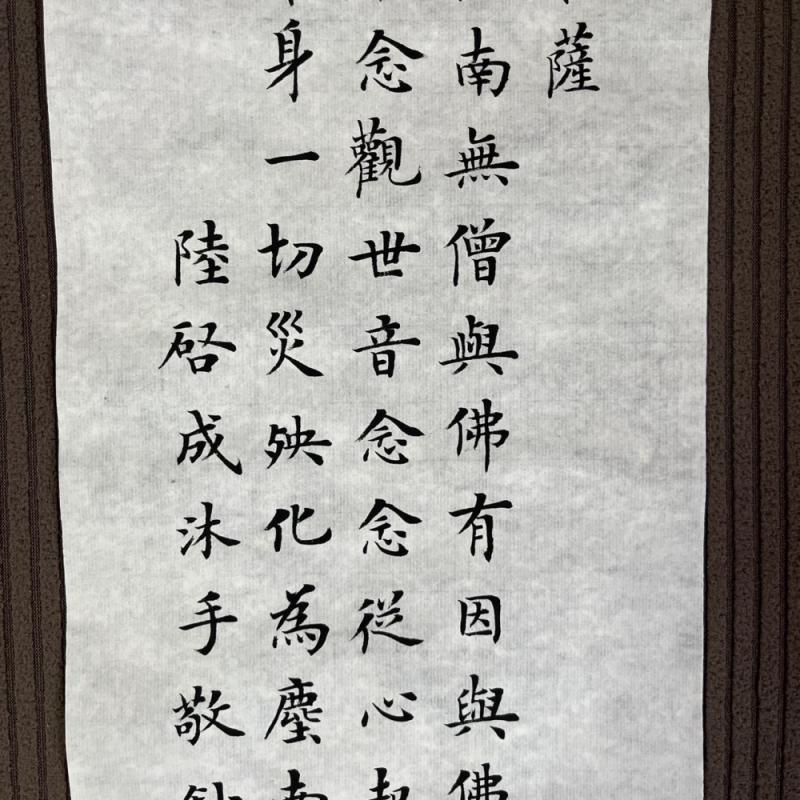 薩
南無僧與佛有因與佛
念觀世音念念從心起
身一切災殃化為塵南
陸啓成沐手敬鈔